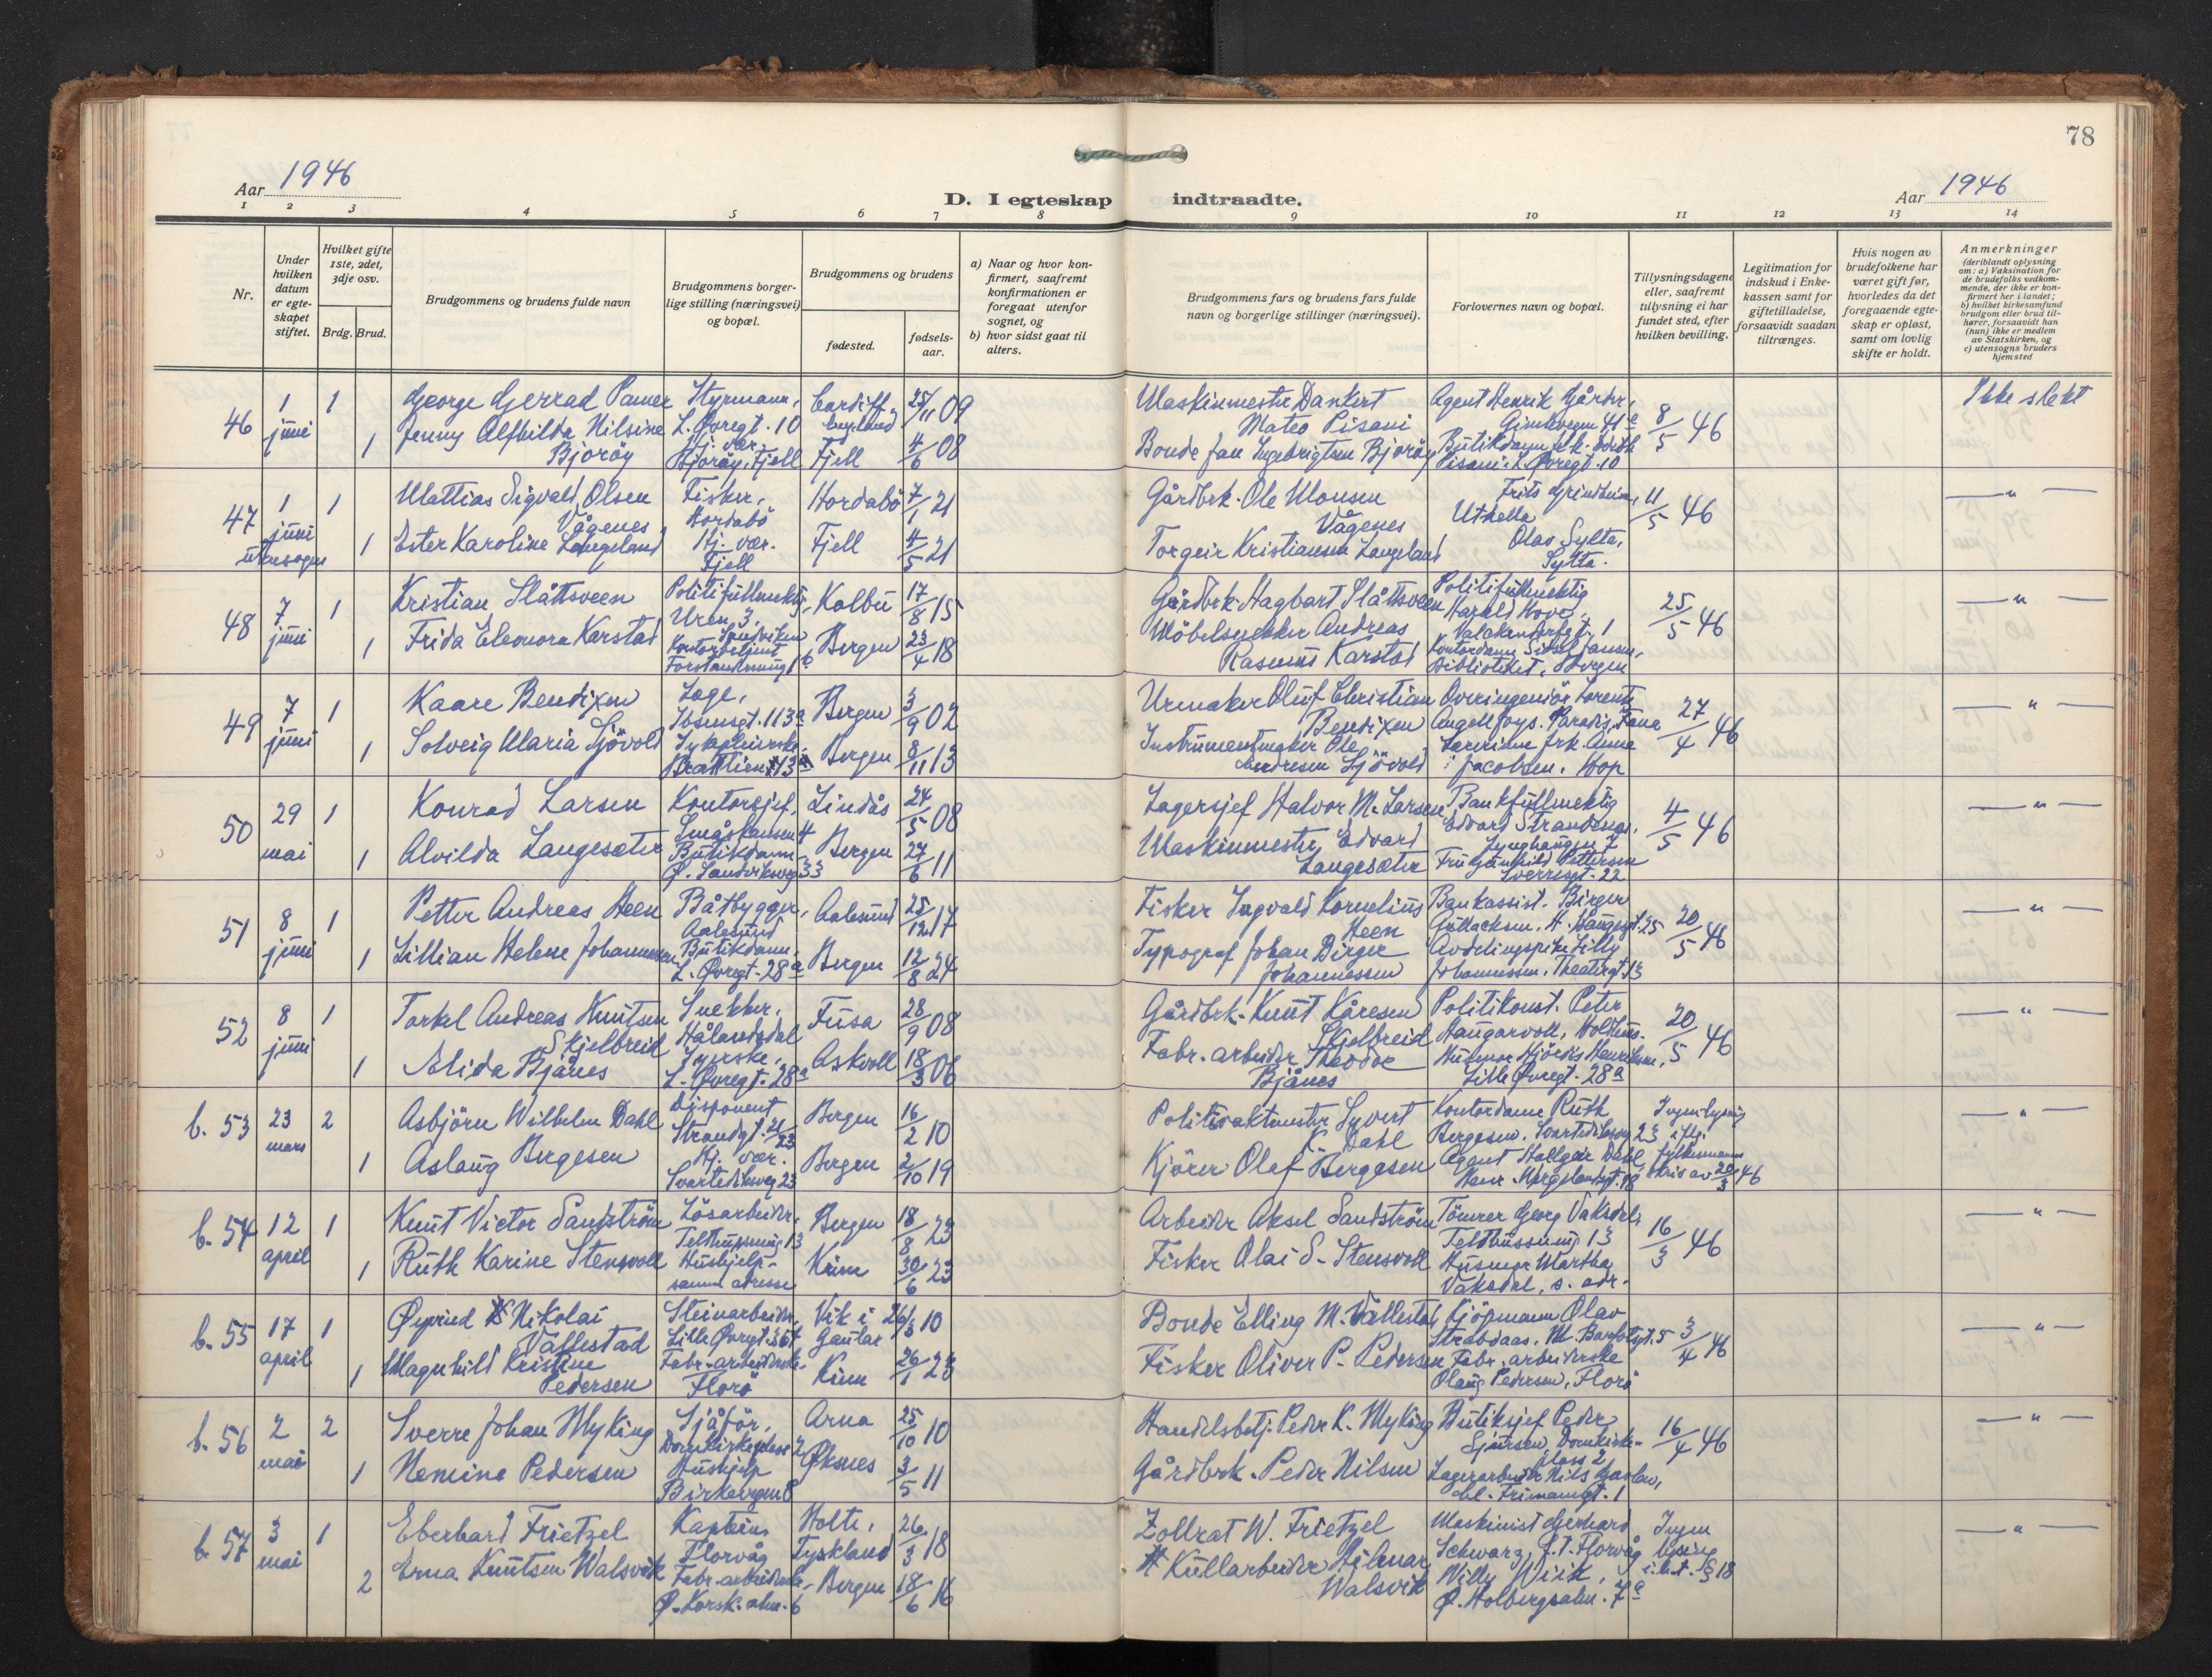 78
Aar 1946
D. I egteskap indtraadte.
Aar 1946
1 2 3 4 5 6 7 8 9 10 11 12 13 14
Nr.
Under hvilken datum er egteskapet stiftet.
Hvilket gifte 1ste, 2det, 3dje osv.
Brdg. Brud.
Brudgommens og brudens fulde navn
Brudgommens borgerlige stilling (næringsvei) og bopæl.
Brudgommens og brudens
fødested.
fødselsaar.
a) Naar og hvor konfirmert, saafremt konfirmationen er foregaat utenfor sognet, og
b) hvor sidst gaat til alters.
Brudgommens fars og brudens fars fulde navn og borgerlige stillinger (næringsvei).
Forlovernes navn og bopæl.
Tillysningsdagene eller, saafremt tillysning ei har fundet sted, efter hvilken bevilling.
Legitimation for indskud i Enkekassen samt for giftetilladelse, forsaavidt saadan tiltrænges.
Hvis nogen av brudefolkene har været gift før, hvorledes da det foregaaende egteskap er opløst, samt om lovlig skifte er holdt.
Anmerkninger
(deriblandt oplysning om: a) Vaksination for de brudefolks vedkommende, der ikke er konfirmert her i landet; b) hvilket kirkesamfund brudgom eller brud tilhører, forsaavidt han (hun) ikke er medlem av Statskirken, og c) utensogns bruders hjemsted
46 1 juni 1 George Gerrad Pamer Styrmann, L. Øvregt. 10 Cardiff England 25/11 09 Maskinmester Dankert Mateo Pisani Agent Henrik Gårder, Gimlevegen 41a 8/5 46 Ikke slekt
1 Jenny Alfhilda Nilsine Bjorøy Hj. vær. Bjorøy, Fjell Fjell 4/6 08 Bonde Jan Ingebrigtsen Bjorøy Butikdame frk. Edith Pisani. L. Øvregt. 10
47 1 juni utensogns 1 Mattias Sigvald Olsen Vågenes Fisker, Hordabö Hordabö 7/1 21 Gårdbrk. Ole Monsen Vågenes Frits Grindheim, Uthella 11/5 46 — " —
1 Ester Karoline Langeland Hj. vær. Fjell Fjell 4/5 21 Torgeir Kristiansen Langeland Olav Sylta, Sylta.
48 7 juni 1 Kristian Slåttsveen Politifullmektig, Uren 3, Sandviken Kolbu 17/8 15 Gårdbrk. Hagbart Slåttsveen Politifullmektig Harald Hove, Valckendorfsgt. 1 25/5 46 — " —
1 Frida Eleonora Karstad Kontorbetjent Bergen 23/4 18 Möbelsnekker Andreas Rasmus Karstad Kontordame Sissel Jansen, Biblioteket, Bergen
49 7 juni 1 Kaare Bendixen Lege, Ibsensgt. 113a Bergen 3/9 02 Urmaker Oluf Christian Bendixen Overingeniør Lorentz Angell Joys. Paradis, Fana 27/4 46 — " —
1 Solveig Maria Sjövold Sykepleierske Brattlien 13 Bergen 8/11 13 Instrumentmaker Ole Andresen Sjövold Lærerinne frk. Anna Jacobsen. Hop
50 29 mai 1 Konrad Larsen Kontorsjef, Småskansen 4 Lindås 24/5 08 Lagersjef Halvor M. Larsen Bankfullmektig Edvard Strandenæs, Lynghaugen 7 4/5 46 — " —
1 Alvilda Langesæter Butikdame Ø. Sandviksveg 33 Bergen 27/6 11 Maskinmester Edvard Langesæter Fru Gunhild Pettersen Sverresgt. 22
51 8 juni 1 Petter Andreas Heen Båtbygger, Aalesund Aalesund 25/12 17 Fisker Ingvald Kornelius Heen Bankassist. Birger Gullachsen, H. Haugesgt. 25 20/5 46 — " —
1 Lillian Helene Johannessen Butikdame, L. Øvregt. 28a Bergen 12/8 24 Typograf Johan Birger Johannessen Avdelingspike Lilly Johannessen, Theatergt. 13
52 8 juni 1 Torkel Andreas Knutsen Skjelbreid Snekker, Hålandsdal Fusa 28/9 08 Gårdbrk. Knut Kåresen Skjelbreid Politikonst. Peter Haugarvoll, Holdhus. 20/5 46 — " —
1 Alida Bjånes Syerske, L. Øvregt. 28a Askvoll 18/3 06 Fabr. arbeider Theodor Bjånes Husmor Hjördis Henriksen, Lille Øvregt. 28a
b. 53 23 mars 2 Asbjörn Wilhelm Dahl Disponent Strandgt. 21/23 Bergen 16/2 10 Politivaktmester Syvert K. Dahl Kontordame Ruth Bergesen. Svartediksveg 23 Ingen lysing iflg. fylkesmann skriv av 20/3 46 — " —
1 Aslaug Bergesen Hj. vær. Svartediksveg 23 Bergen 2/10 19 Kjörer Olaf Bergesen Agent Hallgeir Dahl, Henr. Wergelandsgt. 18
b. 54 12 april 1 Knut Victor Sandström Lösarbeider, Telthussmug 13 Bergen 18/8 23 Arbeider Aksel Sandström Tömrer Georg Vaksdal, Telthussmug 13 16/3 46 — " —
1 Ruth Karine Stensvoll Hushjelp samme adresse Kinn 30/6 23 Fisker Olai S. Stensvoll Husmor Martha Vaksdal, s. adr.
b. 55 17 april 1 Øyvind Nikolai Vallestad Steinarbeider, Lille Øvregt. 36 Vik i Gaular 26/3 10 Bonde Elling M. Vallestad Kjöpmann Olav Strebdaas. M. Barfotgt. 5 3/4 46 — " —
1 Magnhild Kristine Pedersen Fabr. arbeiderske Florö Kinn 26/1 23 Fisker Oliver P. Pedersen Fabr. arbeiderske Olaug Pedersen, Florö
b. 56 2 mai 2 Sverre Johan Myking Sjåför, Domkirkeplass 2 Arna 25/10 10 Handelsbetj. Peder K. Myking Butiksjef Peder Sjursen, Domkirkeplass 2 16/4 46 — " —
1 Nemine Pedersen Hushjelp Birkevegen 8 Øksnes 3/5 11 Gårdbrk. Peder Nilsen Lagerarbeider Nils
b. 57 3 mai 1 Eberhard Frietzel Kaptein, Florvåg Holte, Tyskland 26/3 18 Zollrat W. Frietzel Maskinist Gerhard Schwarz, p. t. Florvåg Ingen lysing i. l. et. § 18 — " —
2 Erna Knutsen Walsvik Fabr. arbeiderske Ø. Korsk. alm. 6 Bergen 18/6 16 Kullarbeider Hilmar Walsvik Willy Wiik, Ø. Holbergsalm. 7a